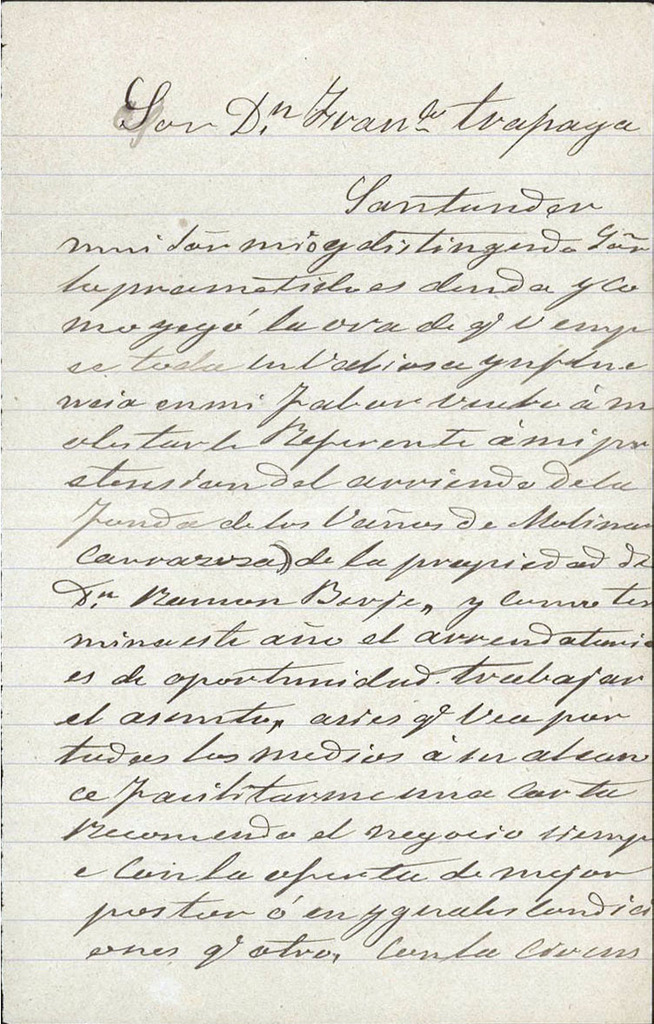 Sor Dn Franco trapaga
Santander
mui Sõr mio y distinguido Sõr
lo prometido es deuda y co
mo yegó la ora de qe V emp
ee toda su Valiosa ynflue
ncia en mi fabor vuelbo á m
olestarle Referente á mi pre
stension del arriendo de la
fonda de los Vaños de Molinar
Carrazosa) de la propiedad de
Dn Ramon Berje,, y como ter
mina este año el arrendatario
es de oportunidad trabajar
el asunto,, asi es qe Vea por
tudos los medios á su alcan
ce facilitarme una carta
Recomendo el negocio siemp
e con la oferta de mejor
postor ó en yguales condici
ones qe otro, con la circuns